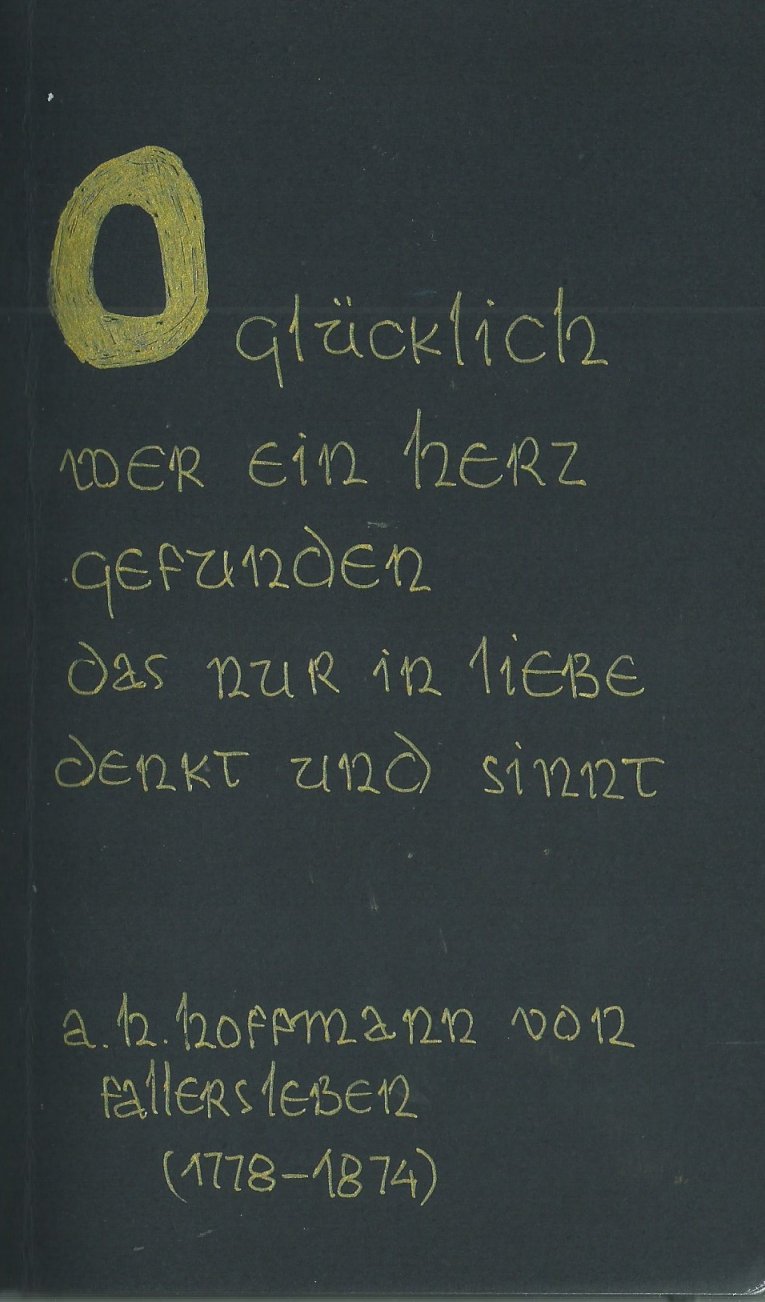 O glücklich
wer ein herz
gefunden
das nur in liebe
denkt und sinnt
a.h.hoffmann von
fallersleben
(1778-1874)